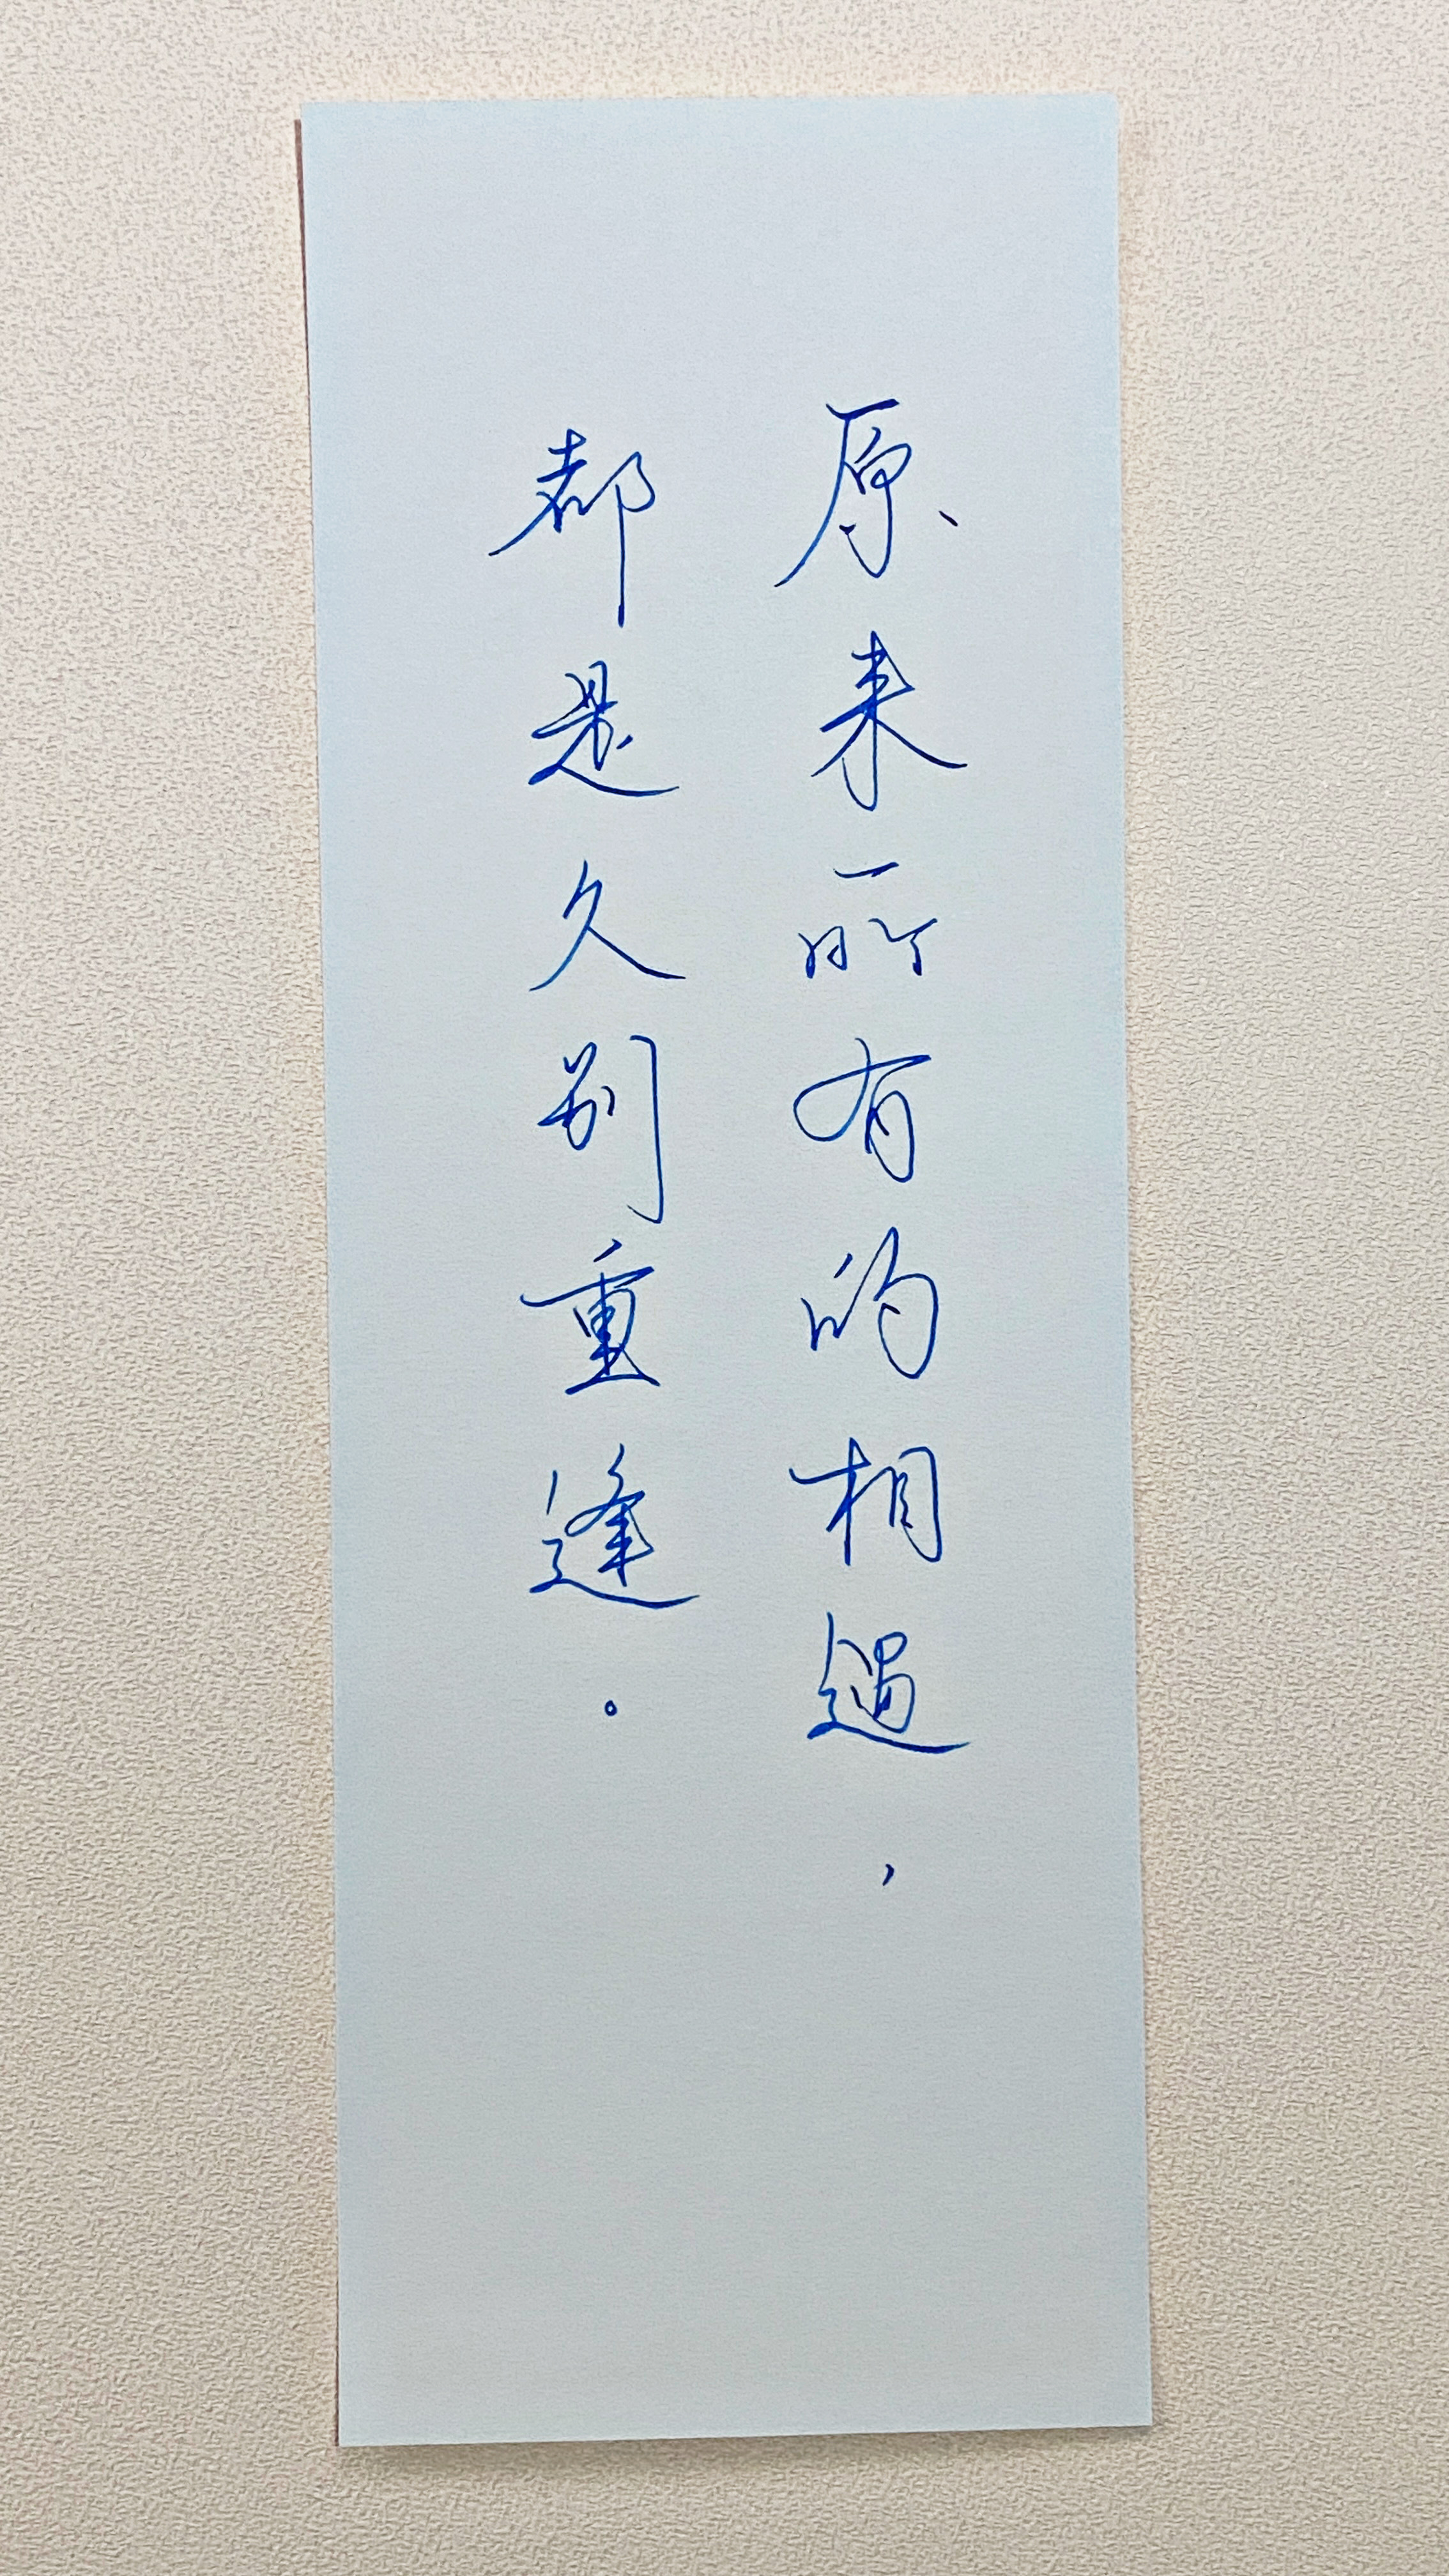 原来所有的相遇，
都是久别重逢。